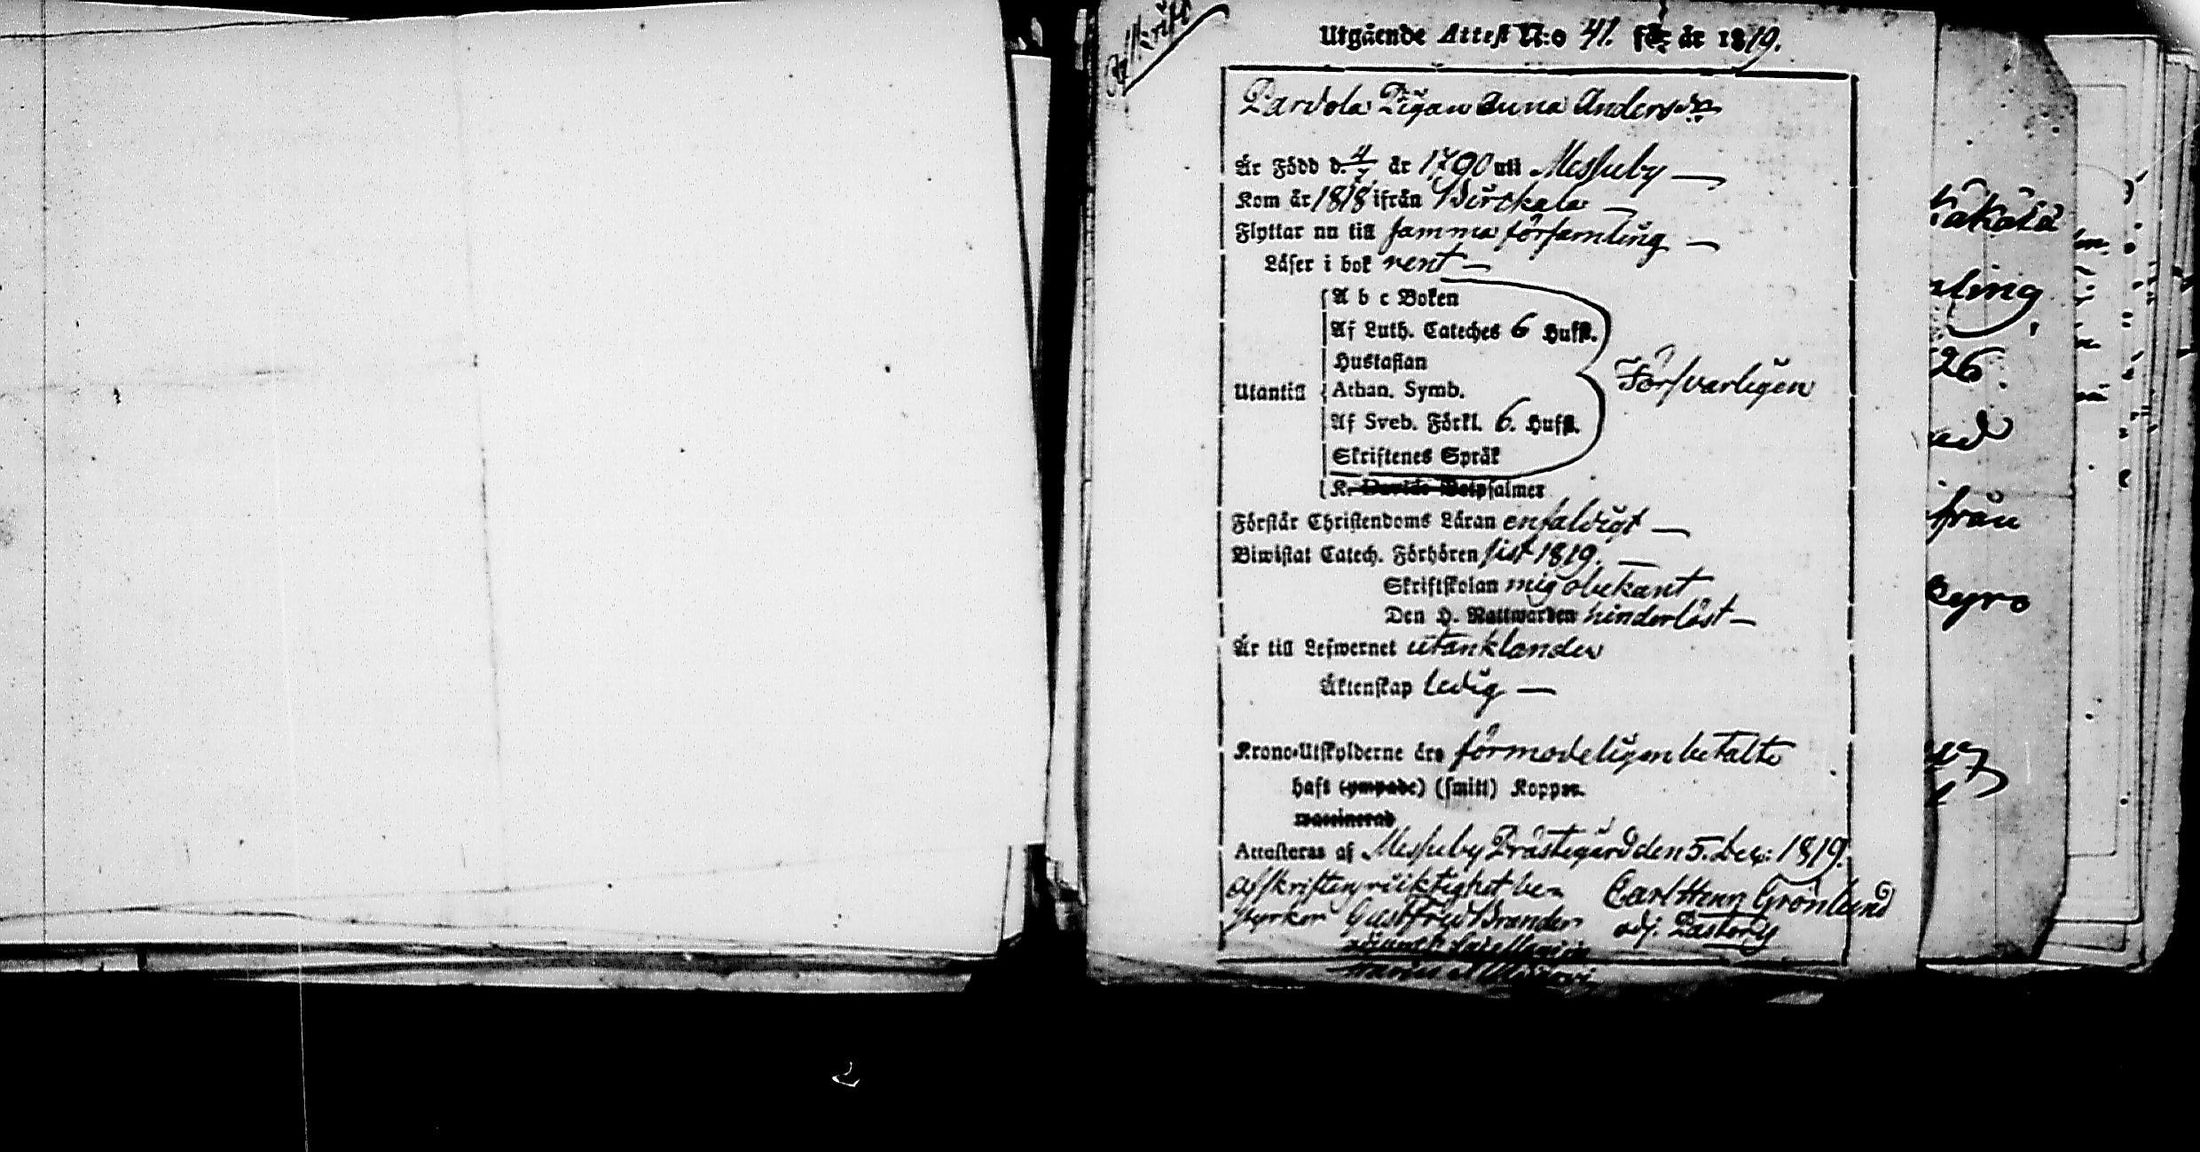 Afskrift
Utgående Attest N:o 41. för år 1819.
Pardola Pigan Anna Andersdr
Är Född d. 4/7 år 1790 uti Messuby
Kom år 1818 ifrån Birckala
Flyttar nu till samma församling
Läser i bok rent
A b c Boken
Af Luth. Cateches 6 Hufst.
Hustaflan
Utantill Athan. Symb. Försvarligen
Af Sveb. Förkl. 6. Hufst.
Skriftenes Språk
K. Davids Botpsalmer
Förstår Christendoms Läran enfaldigt
Biwistat Catech. Förhören sist 1819.
Skriftskolan mig obekant
Den H. Nattwarden hinderlöst
Är till Lefwernet utan klander
Äktenskap ledig
Krono-Utskylderne äro förmodeligen betalte
haft (ympade) (smitt) Koppor.
vaccinerad
Attesteras af Messuby Prästegård den 5. Dec: 1819.
Afskriftens riktighet be- Carl Henr Grönlund
styrker Gust Fred Brander adj. Pastoris
Kakola
ling
26
från
kyro